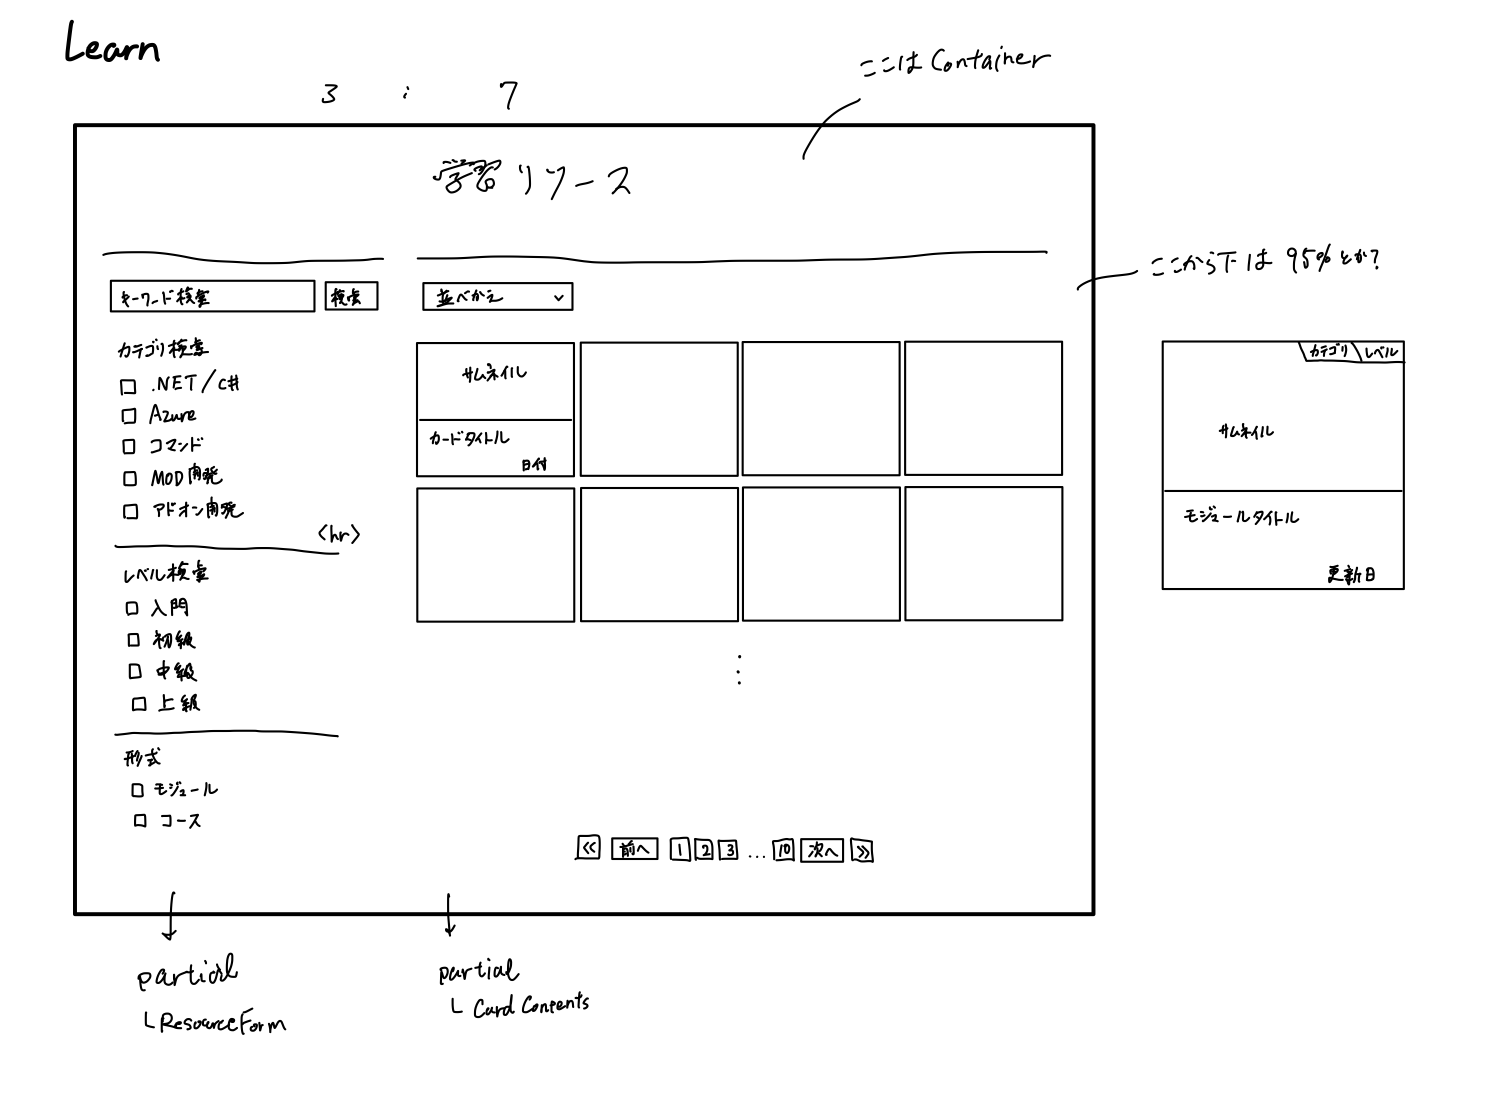 Learn
ここは Container
3 : 7
学習リソース
ここから下は 95%とか?
キーワード検索
検索
並べかえ
カテゴリ検索
.NET/C#
Azure
コマンド
MOD開発
アドオン開発
<hr>
レベル検索
入門
初級
中級
上級
形式
モジュール
コース
サムネイル
カードタイトル
日付
カテゴリ
レベル
サムネイル
モジュールタイトル
更新日
≪ 前へ 1 2 3 ... 10 次へ ≫
partial
└ ResourceForm
partial
└ Card Contents